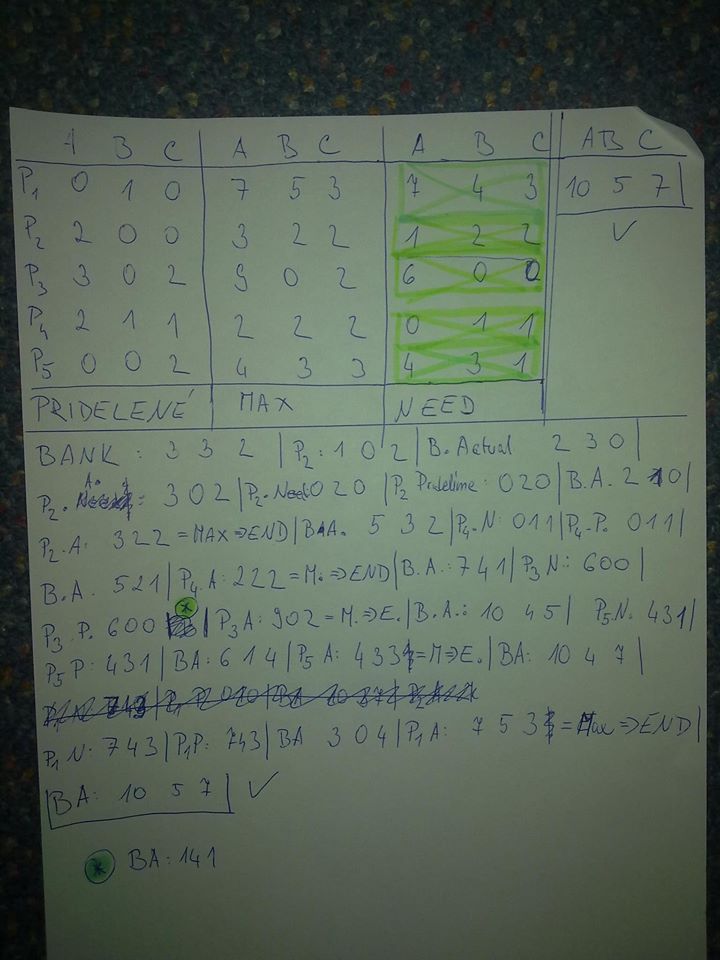 A B C | A B C | A B C || A B C
P1 0 1 0 | 7 5 3 | 7 4 3 || 10 5 7 |
P2 2 0 0 | 3 2 2 | 1 2 2 || ✓
P3 3 0 2 | 9 0 2 | 6 0 0
P4 2 1 1 | 2 2 2 | 0 1 1
P5 0 0 2 | 4 3 3 | 4 3 1
PRIDELENÉ | MAX | NEED
BANK : 3 3 2 | P2: 1 0 2 | B. Actual 2 3 0 |
P2. A. : 3 0 2 | P2. Need 0 2 0 | P2 Pridelíme: 0 2 0 | B.A. 2 1 0 |
P2.A: 3 2 2 = MAX ⇒ END | B.A. 5 3 2 | P4.N: 0 1 1 | P4.P. 0 1 1 |
B.A. 5 2 1 | P4.A: 2 2 2 = M. ⇒ END | B.A.: 7 4 1 | P3 N: 6 0 0 |
P3. P. 6 0 0 | * | P3 A: 9 0 2 = M. ⇒ E. | B.A.: 10 4 5 | P5.N. 4 3 1 |
P5 P: 4 3 1 | BA: 6 1 4 | P5 A: 4 3 3 = M ⇒ E. | BA: 10 4 7 |
P1 N: 7 4 3 | P1 P: 7 4 3 | BA 3 0 4 | P1 A: 7 5 3 = Max ⇒ END |
BA: 10 5 7 | ✓
* BA: 1 4 1